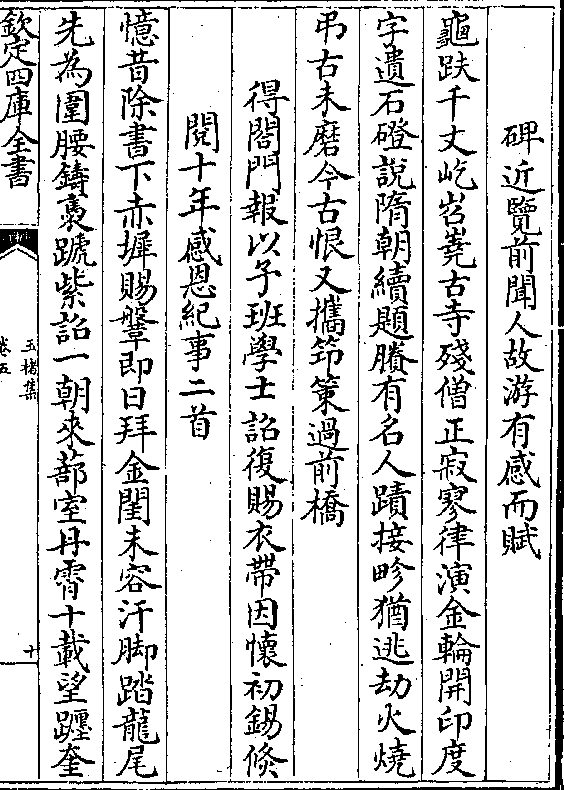 碑近覽前聞人故游有感而賦
龜趺千丈屹岧嶤古寺殘僧正寂寥律演金輪開印度
字遺石磴說隋朝續題賸有名人蹟接畛猶逃劫火燒
弔古未磨今古恨又攜筇策過前橋
得閤門報以子班學士詔復賜衣帶因懷初錫倐
閱十年感恩紀事二首
憶昔除書下赤墀賜鞶即日拜金閨未容汗脚踏龍尾
先為圍腰鑄褭蹏紫詔一朝來蔀室丹霄十載望躔奎
欽定四庫全書
玉楮集
卷五
十